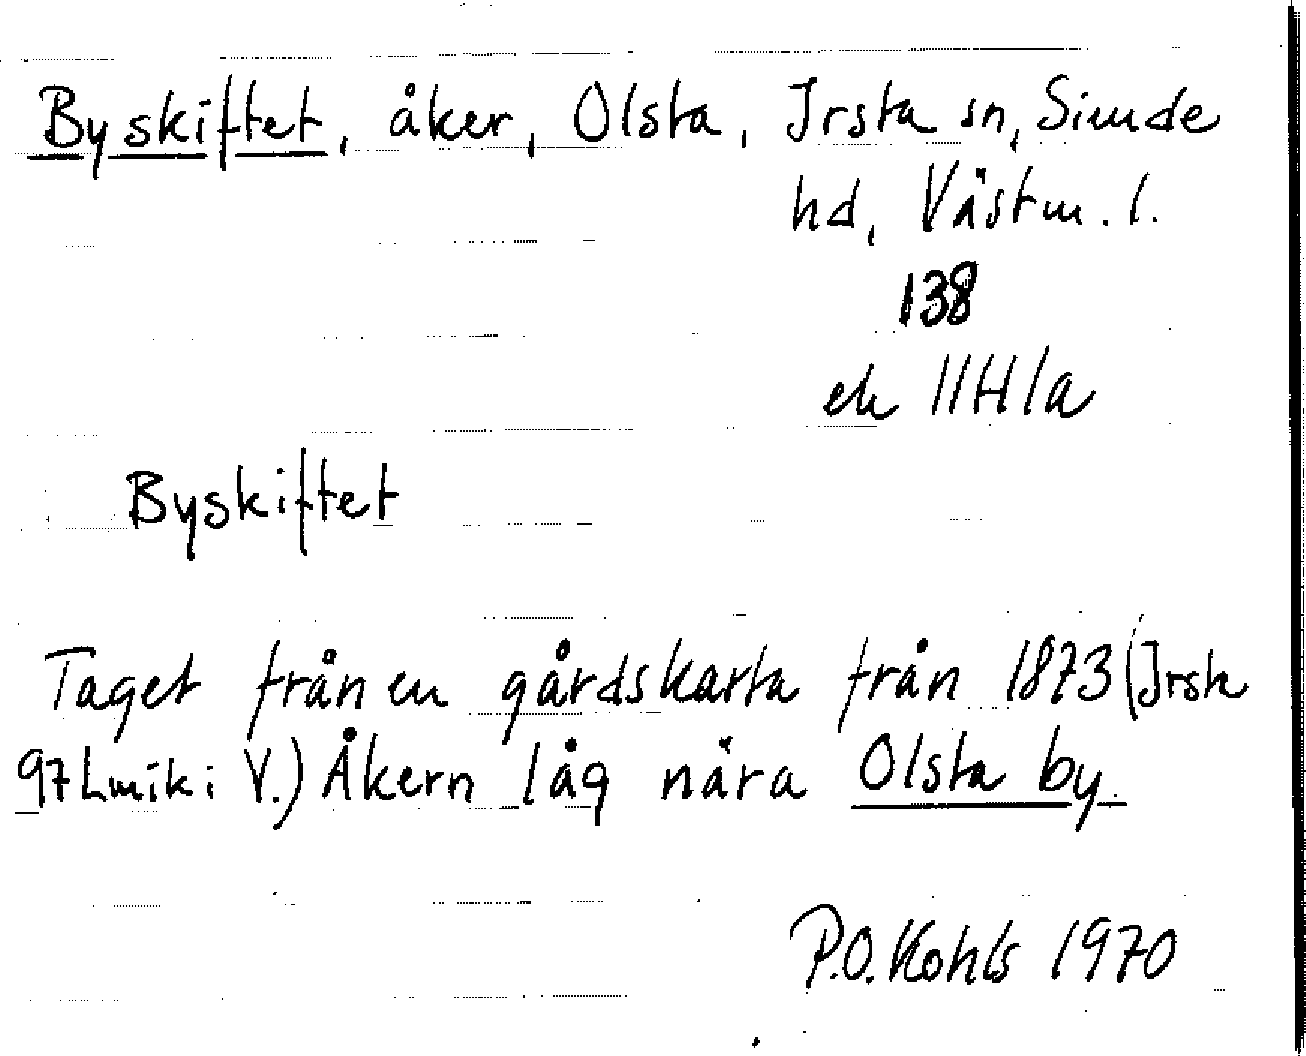 Byskiftet, åker, Olsta, Irsta sn, Siende
hd, Västm. l.
138
ek 11H1a
Byskiftet
Taget från en gårdskarta från 1873 (Irsta
97 Lmk i V.) Åkern låg nära Olsta by.
P.O. Kohls 1970